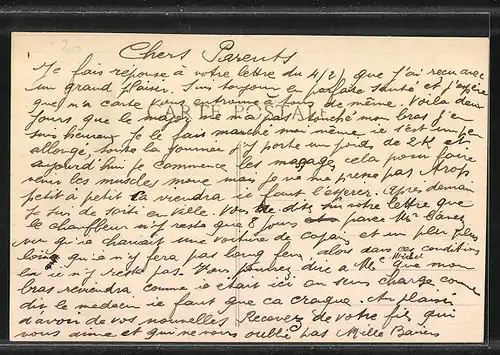 Chers Parents
Je fais reponse a votre lettre du 4/2, que j'ai recu avec
un grand plaisir. Suis toujours en parfaite santé et j'espère
que ma carte vous en trouve a tous de même. Voila deux
CARTE POSTALE
jours que le major ne m'a pas touché mon bras j'en
suis heureux je le fais marché moi même je s'est un peu
allongé, toute la journee j'y porte un poids de 2K et
aujourd'hui je commence les massages, cela pour faire
venir les muscles meme mais je ne me presse pas trop
petit a petit la viendra je faut l'esperer. Apres demain
je suis de sorti en ville. Vous me dite sur votre lettre que
le chauffeur n'y reste que 8 jours parce
vu qu'il chariait une voiture de et un peu plus
loin qu'il n'y fera pas long feu, alors dans ces conditions
la il n'y reste pas. Vous pourrez dire a Michel que mon
bras reviendra comme il était ici on sens charge comme
dis le medecin je faut que ca craque. Au plaisir
d'avoir de vos nouvelles Recevez de votre fils qui
vous aime et qui ne vous oublie pas Mille Baisers